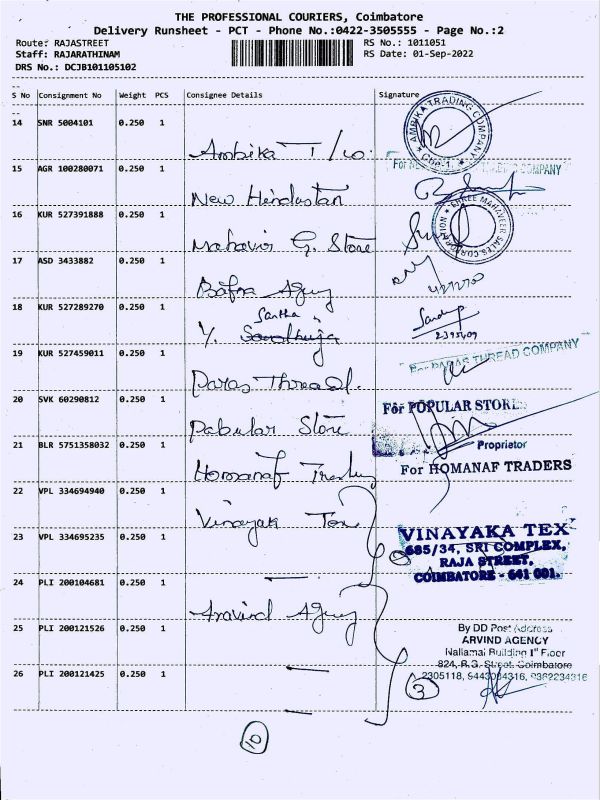 THE PROFESSIONAL COURIERS, Coimbatore
Delivery Runsheet - PCT - Phone No.:0422-3505555 - Page No.:2
Route: RAJASTREET RS No.: 1011051
Staff: RAJARATHINAM RS Date: 01-Sep-2022
DRS No.: DCJB101105102
S No Consignment No Weight PCS Consignee Details Signature
14 SNR 5004101 0.250 1
Ambika T/co.
AMBIKA TRADING COMPANY
CBE-1.
15 AGR 100280071 0.250 1
New Hindustan
For COMPANY
16 KUR 527391888 0.250 1
Mahavir G. Store
SHREE MAHAVEER SALES CORPORATION
17 ASD 3433882 0.250 1
Bafna Agency
18 KUR 527289270 0.250 1
Y.
Sandeep
19 KUR 527459011 0.250 1
Paras Thread.
For PARAS THREAD COMPANY
20 SVK 60290812 0.250 1
Pabular Store
For POPULAR STORE
Proprietor
21 BLR 5751358032 0.250 1
Homanaf Trading
For HOMANAF TRADERS
22 VPL 334694940 0.250 1
Vinayak Tex
23 VPL 334695235 0.250 1
VINAYAKA TEX
685/34, SRI COMPLEX,
RAJA STREET,
COIMBATORE - 641 001.
24 PLI 200104681 0.250 1
Aravind Agency
25 PLI 200121526 0.250 1
By DD Post Address
ARVIND AGENCY
Nallamai Building 1st Floor
824, R.G. Street, Coimbatore
2305118, 9443064316, 9362234316
26 PLI 200121425 0.250 1
3
10